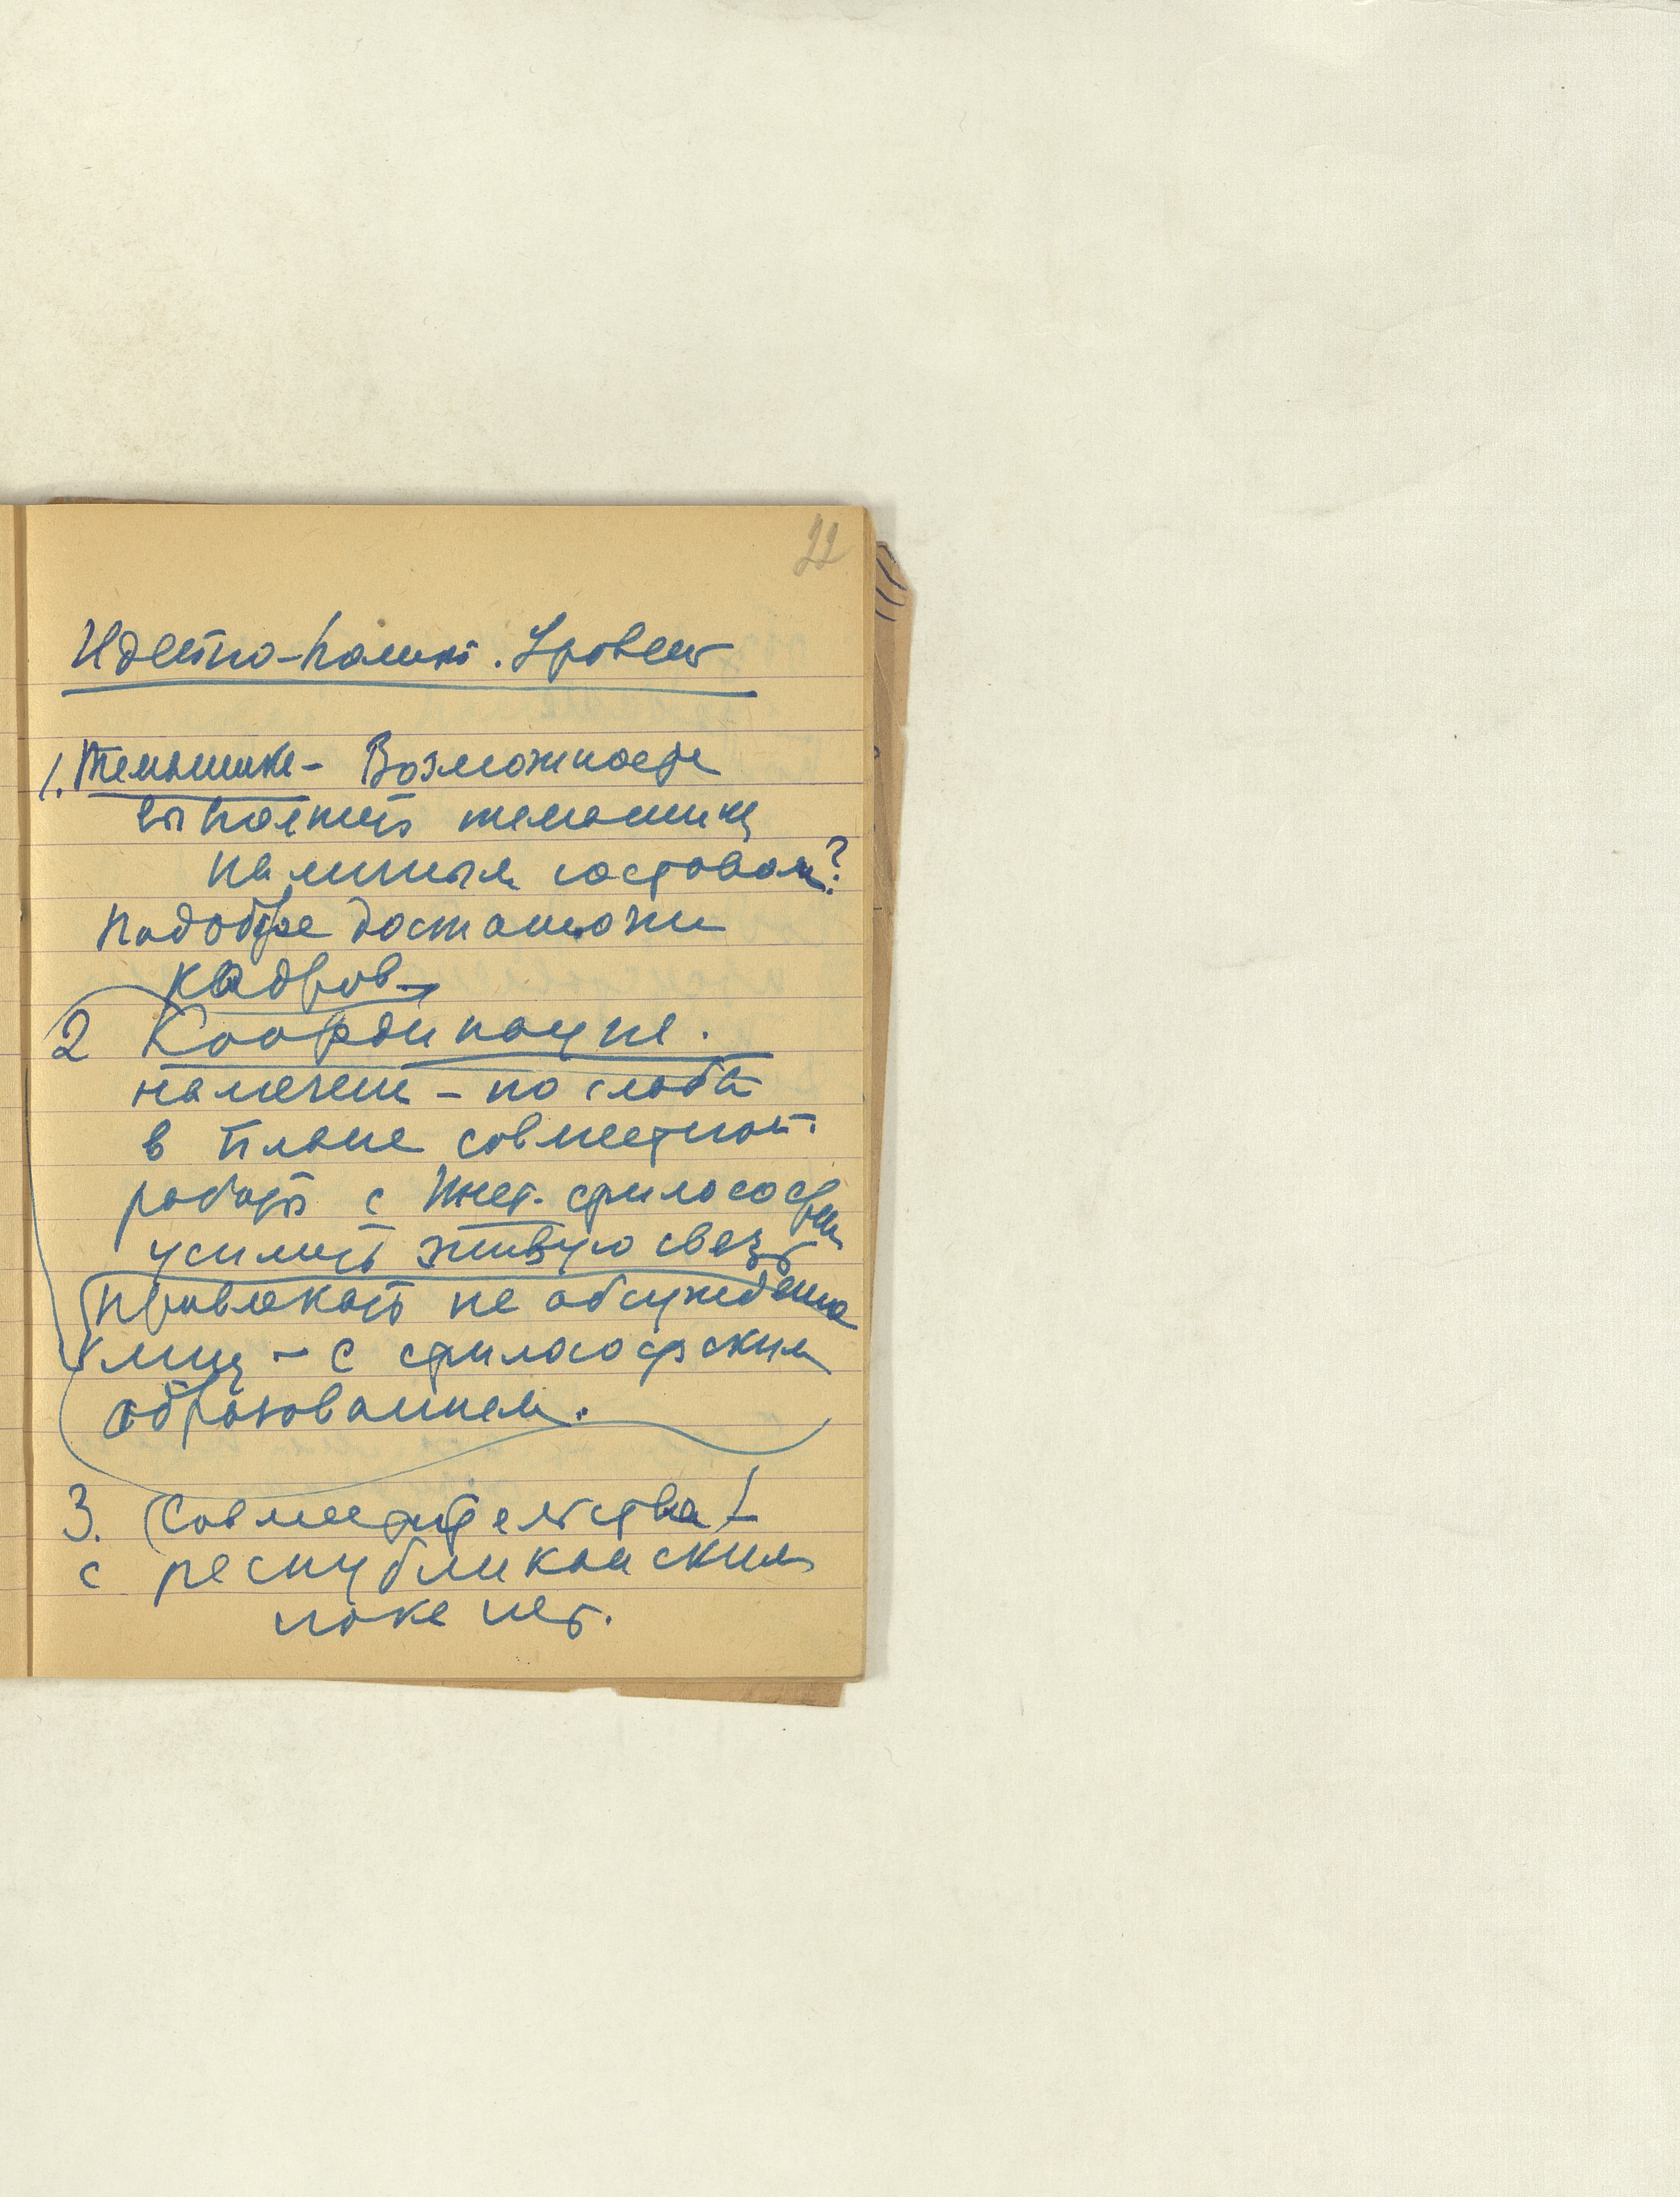 22
Идейно-полит. Уровень
1. Тематика - Возможность
выполнить тематику
наличным составом?
Подобрае достаточно
кадров
2 Координация.
намечен - но слабо
в плане совместной
работы с Инст. философии
усилить живую связь
привлекать на обсуждения
лиц - с философским
образованием.
3. Совместительства!
с республиканским
пока нет.